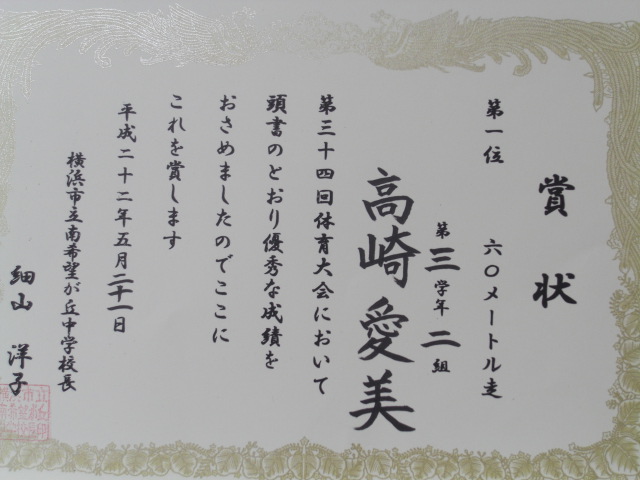 賞状
第一位 六〇メートル走
第三学年二組
高崎愛美
第三十四回体育大会において
頭書のとおり優秀な成績を
おさめましたのでここに
これを賞します
平成二十二年五月二十一日
横浜市立南希望が丘中学校長
細山 洋子